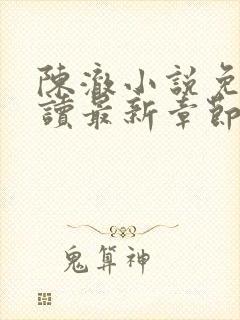 陳澈小説免
讀最新章節
鬼算神